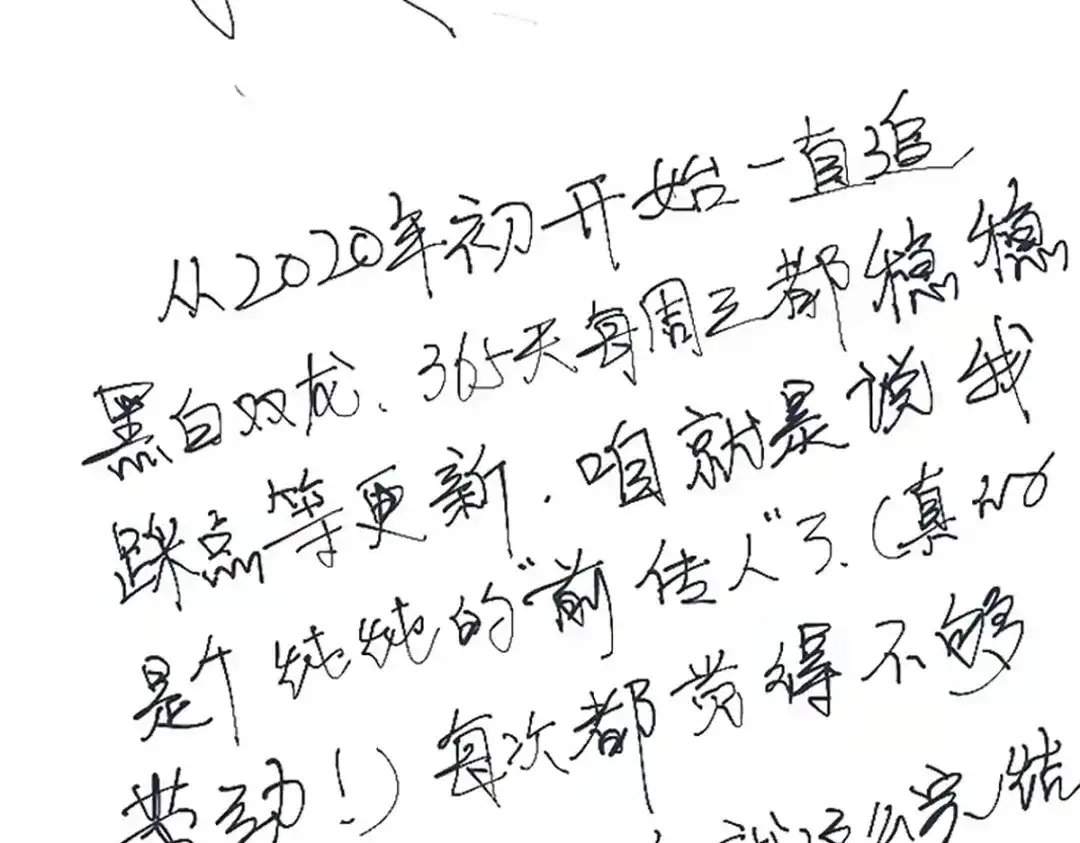 从2020年初开始一直追
黑白双龙、365天每周三都稳稳
踩点等更新.咱就是说我
是个纯纯的"前传人"了.(真的
带劲!)每次都觉得不够
就这么完结